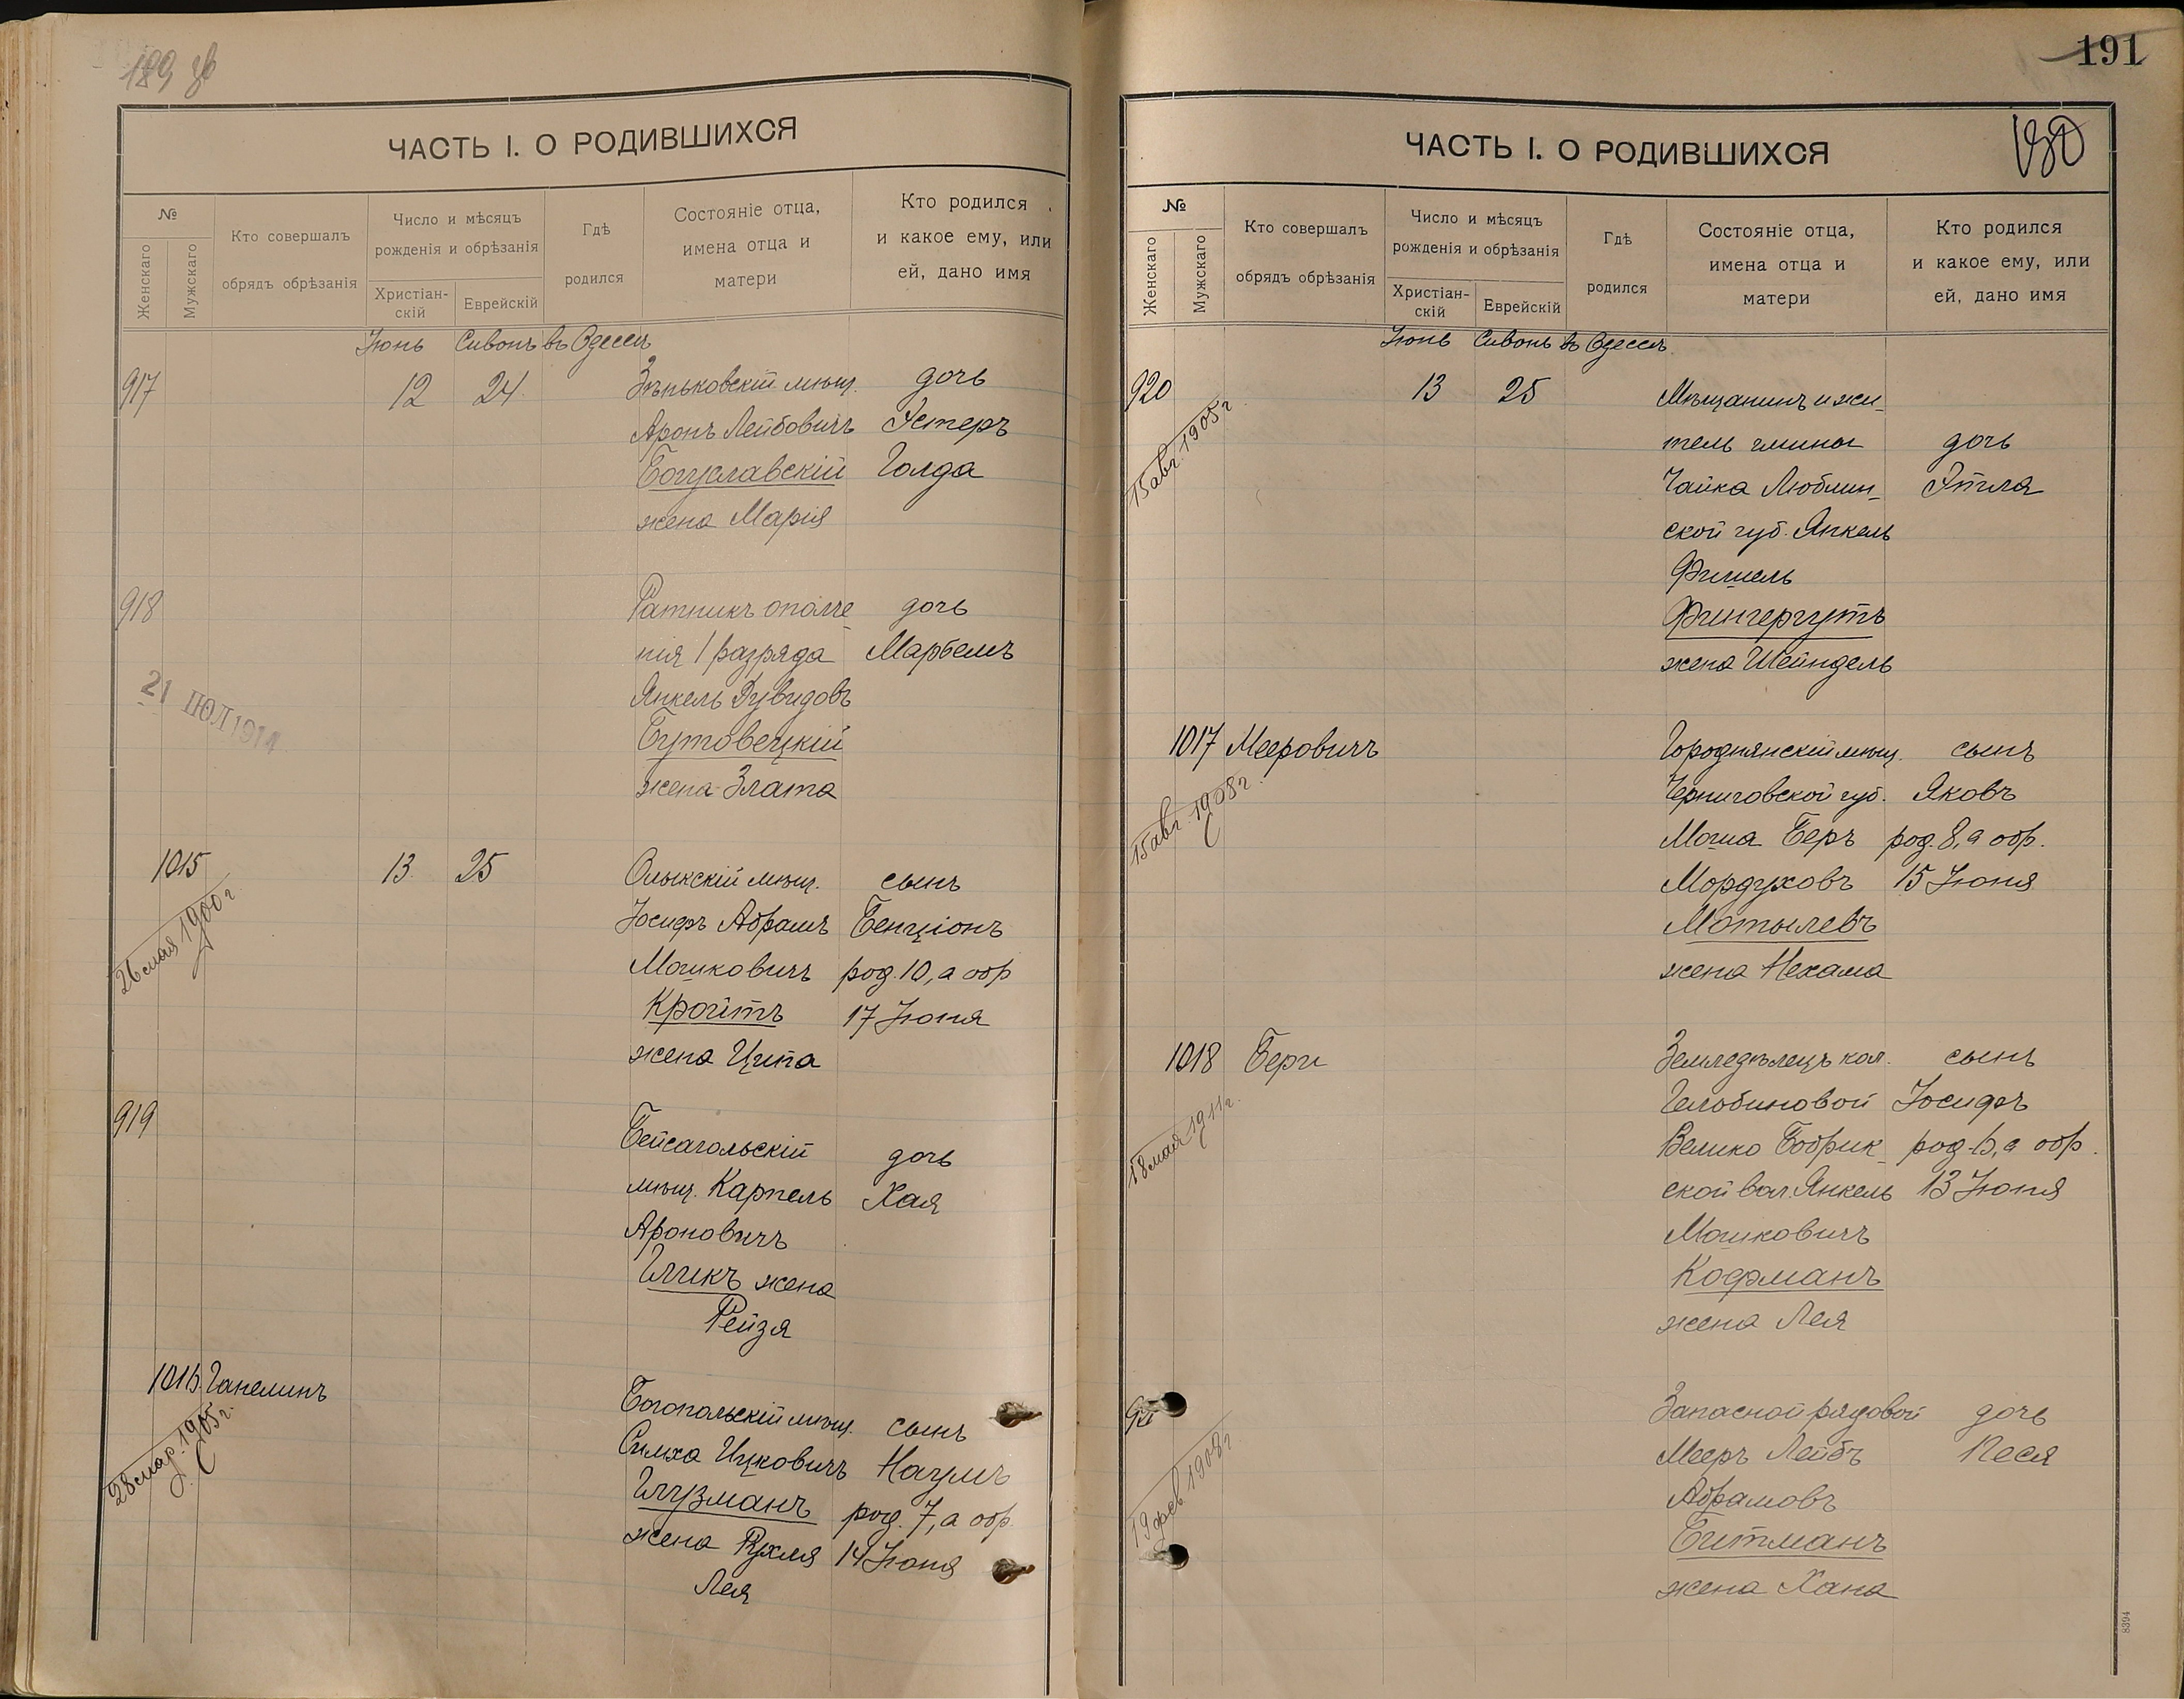 189 зв
ЧАСТЬ I. О РОДИВШИХСЯ
№
Женскаго
Мужскаго
Кто совершалъ
обрядъ обрѣзанія
Число и мѣсяцъ
рожденія и обрѣзанія
Христіан-
скій
Еврейскій
Гдѣ
родился
Состояніе отца,
имена отца и
матери
Кто родился
и какое ему, или
ей, дано имя
Іюнь Сивонъ въ Одессѣ
917 12 24 Зѣньковскій мѣщ. дочь
Аронъ Лейбовичъ Эстеръ
Богуславскій Голда
жена Марія
918 Ратникъ ополче дочь
нія 1 разряда Марбемъ
Янкель Дувидовъ
21 ІЮЛ 1914
Бутовецкій
жена Злата
1015 13 25 Олыкскій мѣщ. сынъ
26 мая 1900 г
Іосифъ Абрамъ Бенціонъ
Мошковичъ род. 10, а обр
Кройтъ 17 Іюня
жена Ципа
919 Бейсагольскій дочь
мѣщ. Карпель Хая
Ароновичъ
Гликъ жена
Рейзя
1016 Ганелинъ Богопольскій мѣщ. сынъ
28 мар. 1905 г.
Симха Ицковичъ Наумъ
Глузманъ род. 7, а обр.
жена Рухля 14 Іюня
Лея
191
180
ЧАСТЬ I. О РОДИВШИХСЯ
№
Женскаго
Мужскаго
Кто совершалъ
обрядъ обрѣзанія
Число и мѣсяцъ
рожденія и обрѣзанія
Христіан-
скій
Еврейскій
Гдѣ
родился
Состояніе отца,
имена отца и
матери
Кто родился
и какое ему, или
ей, дано имя
Іюнь Сивонъ въ Одессѣ
920 13 25 Мѣщанинъ и жи-
15 авг. 1905 г
тель гмины дочь
Чайка Люблин- Этля
ской губ. Янкель
Фишель
Фингергутъ
жена Шейндель
1017 Мееровичъ Городнянскій мѣщ. сынъ
15 авг. 1908 г.
Черниговской губ. Яковъ
Моша Беръ род. 8, а обр.
Мордуховъ 15 Іюня
Мотылевъ
жена Нехама
1018 Берг Земледѣлецъ кол. сынъ
18 мая 1911 г.
Гелобиновой Іосифъ
Велико Бобрик- род. 6, а обр.
ской вол. Янкель 13 Іюня
Мошковичъ
Кофманъ
жена Лея
Запасной рядовой дочь
19 фев. 1908 г.
Мееръ Лейбъ Песя
Абрамовъ
Битманъ
жена Хана
8394